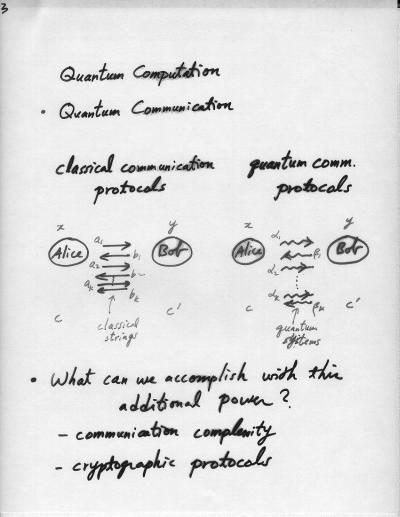 3
Quantum Computation
• Quantum Communication
classical communication
protocols
quantum comm.
protocols
x y
Alice Bob
a₁
b₁
a₂
b₂
aₖ
bₖ
c c'
classical
strings
x y
Alice Bob
α₁
β₁
α₂
αₖ
βₖ
c c'
quantum
systems
• What can we accomplish with this
additional power?
– communication complexity
– cryptographic protocols